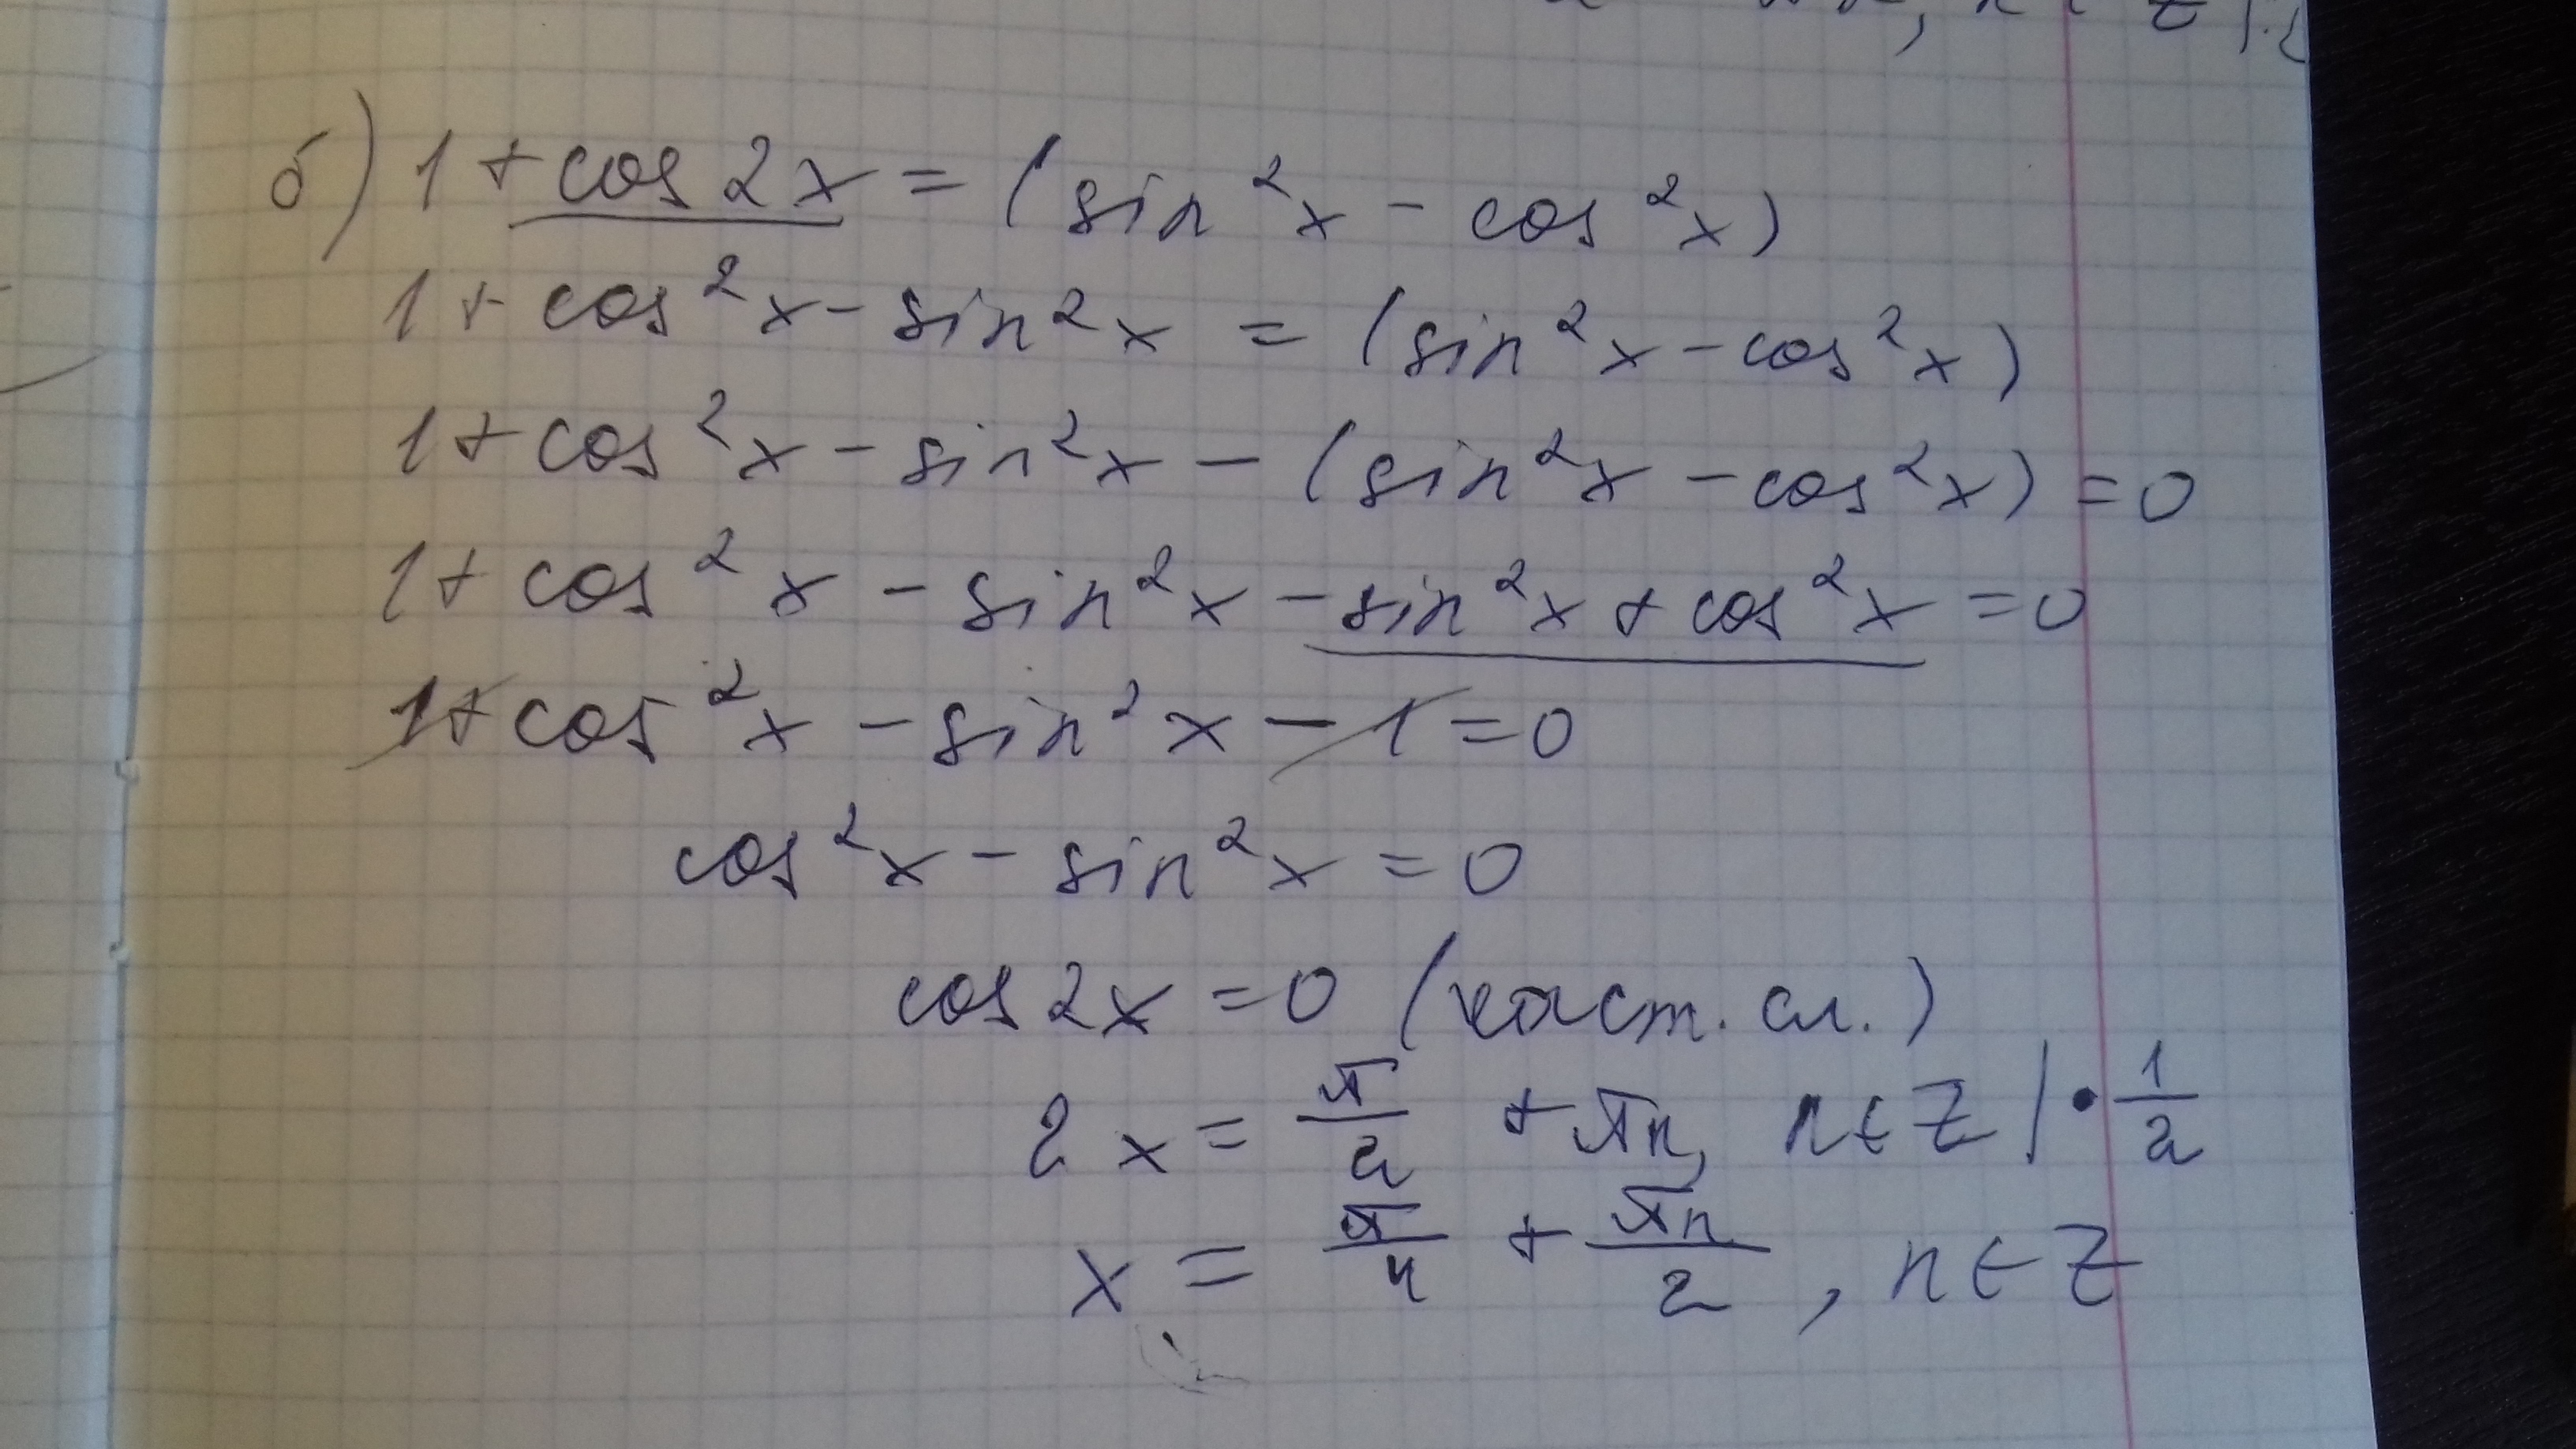 б) 1 + cos 2x = (sin²x - cos²x)
1 + cos²x - sin²x = (sin²x - cos²x)
1 + cos²x - sin²x - (sin²x - cos²x) = 0
1 + cos²x - sin²x - sin²x + cos²x = 0
1 + cos²x - sin²x - 1 = 0
cos²x - sin²x = 0
cos 2x = 0 (част. сл.)
2x = π/2 + πn, n ∈ Z | · 1/2
x = π/4 + πn/2, n ∈ Z